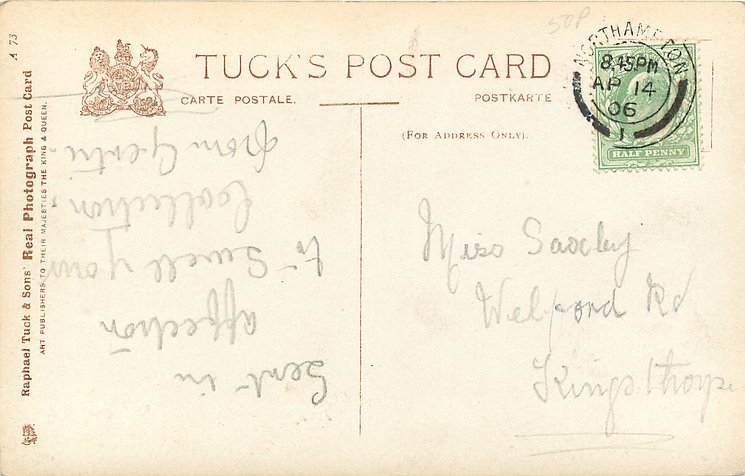 50p
A 73
Raphael Tuck & Sons' Real Photograph Post Card
ART PUBLISHERS TO THEIR MAJESTIES THE KING & QUEEN.
TUCK'S POST CARD
CARTE POSTALE.
POSTKARTE
(FOR ADDRESS ONLY).
NORTHAMPTON
8.45PM
AP 14
06
1
HALF PENNY
Sent in
affection
to Swell your
Collection,
from Gertie,
Miss Saxby
Welford Rd
Kingsthorpe